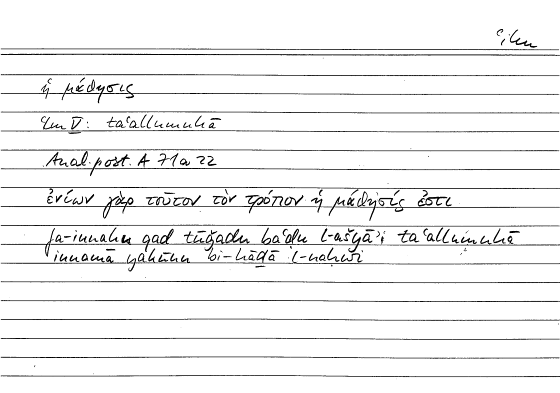 ʿilm
ἡ μάθησις
ʿlm V: taʿallumuhā
Anal. post. A 71 a 22
ἐνίων γὰρ τοῦτον τὸν τρόπον ἡ μάθησίς ἐστι
fa-innahu qad tūǧadu baʿḍu l-ašyāʾi taʿallumuhā
innamā yakūnu bi-hāḏā l-naḥwi